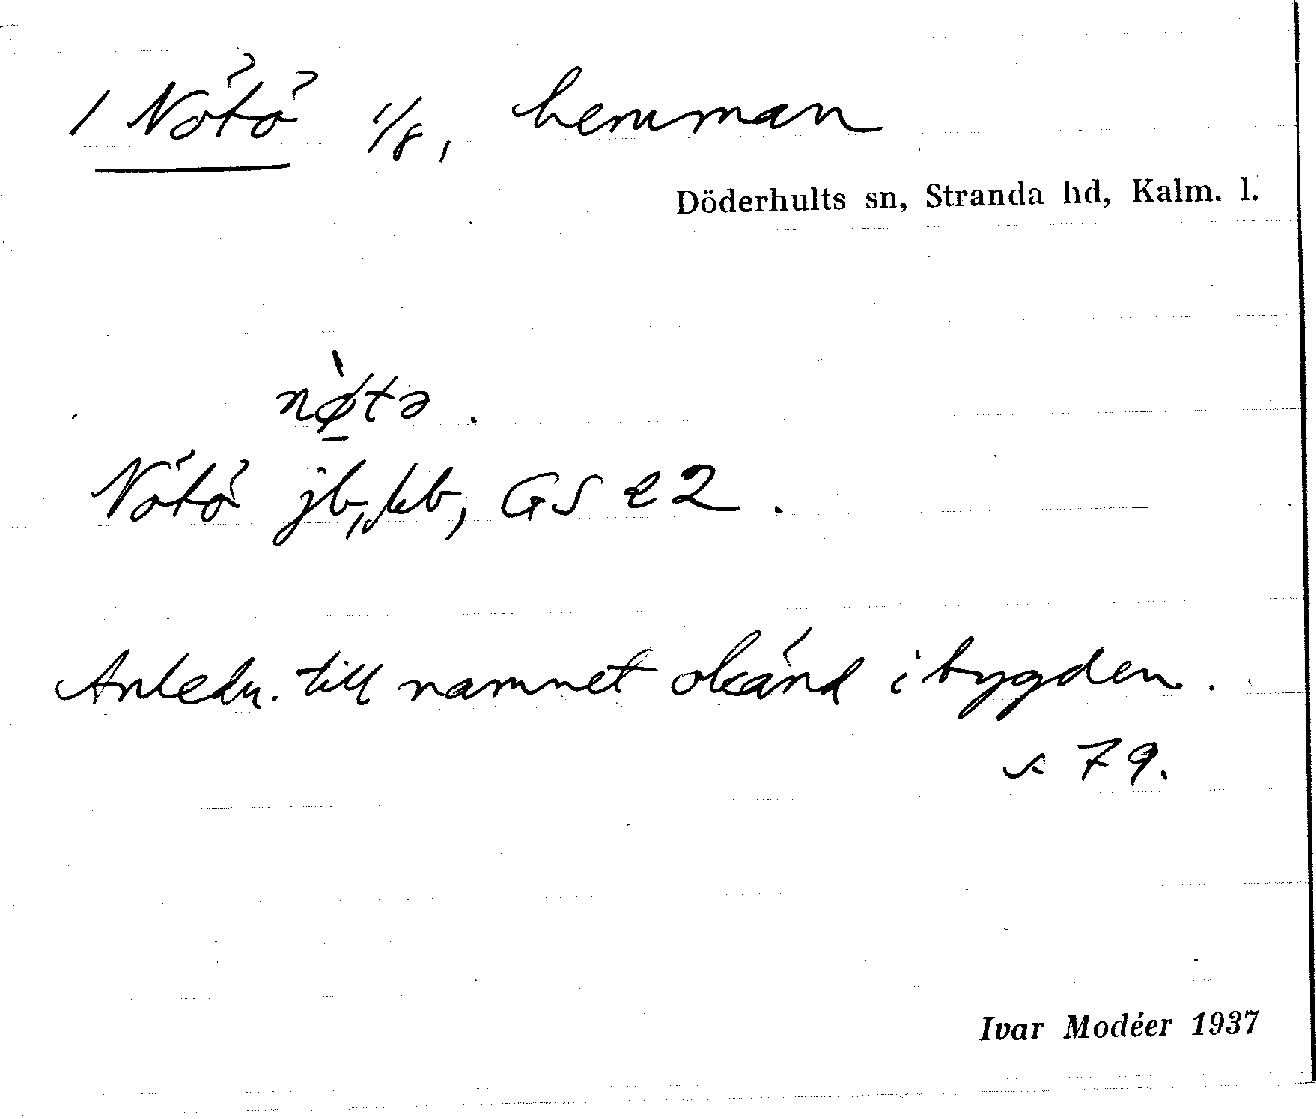 1 Nötö 1/8, hemman
Döderhults sn, Stranda hd, Kalm. l.
nø̀tə.
Nötö jb, kb, GS 22.
Anledn. till namnet okänd i bygden.
s 79.
Ivar Modéer 1937